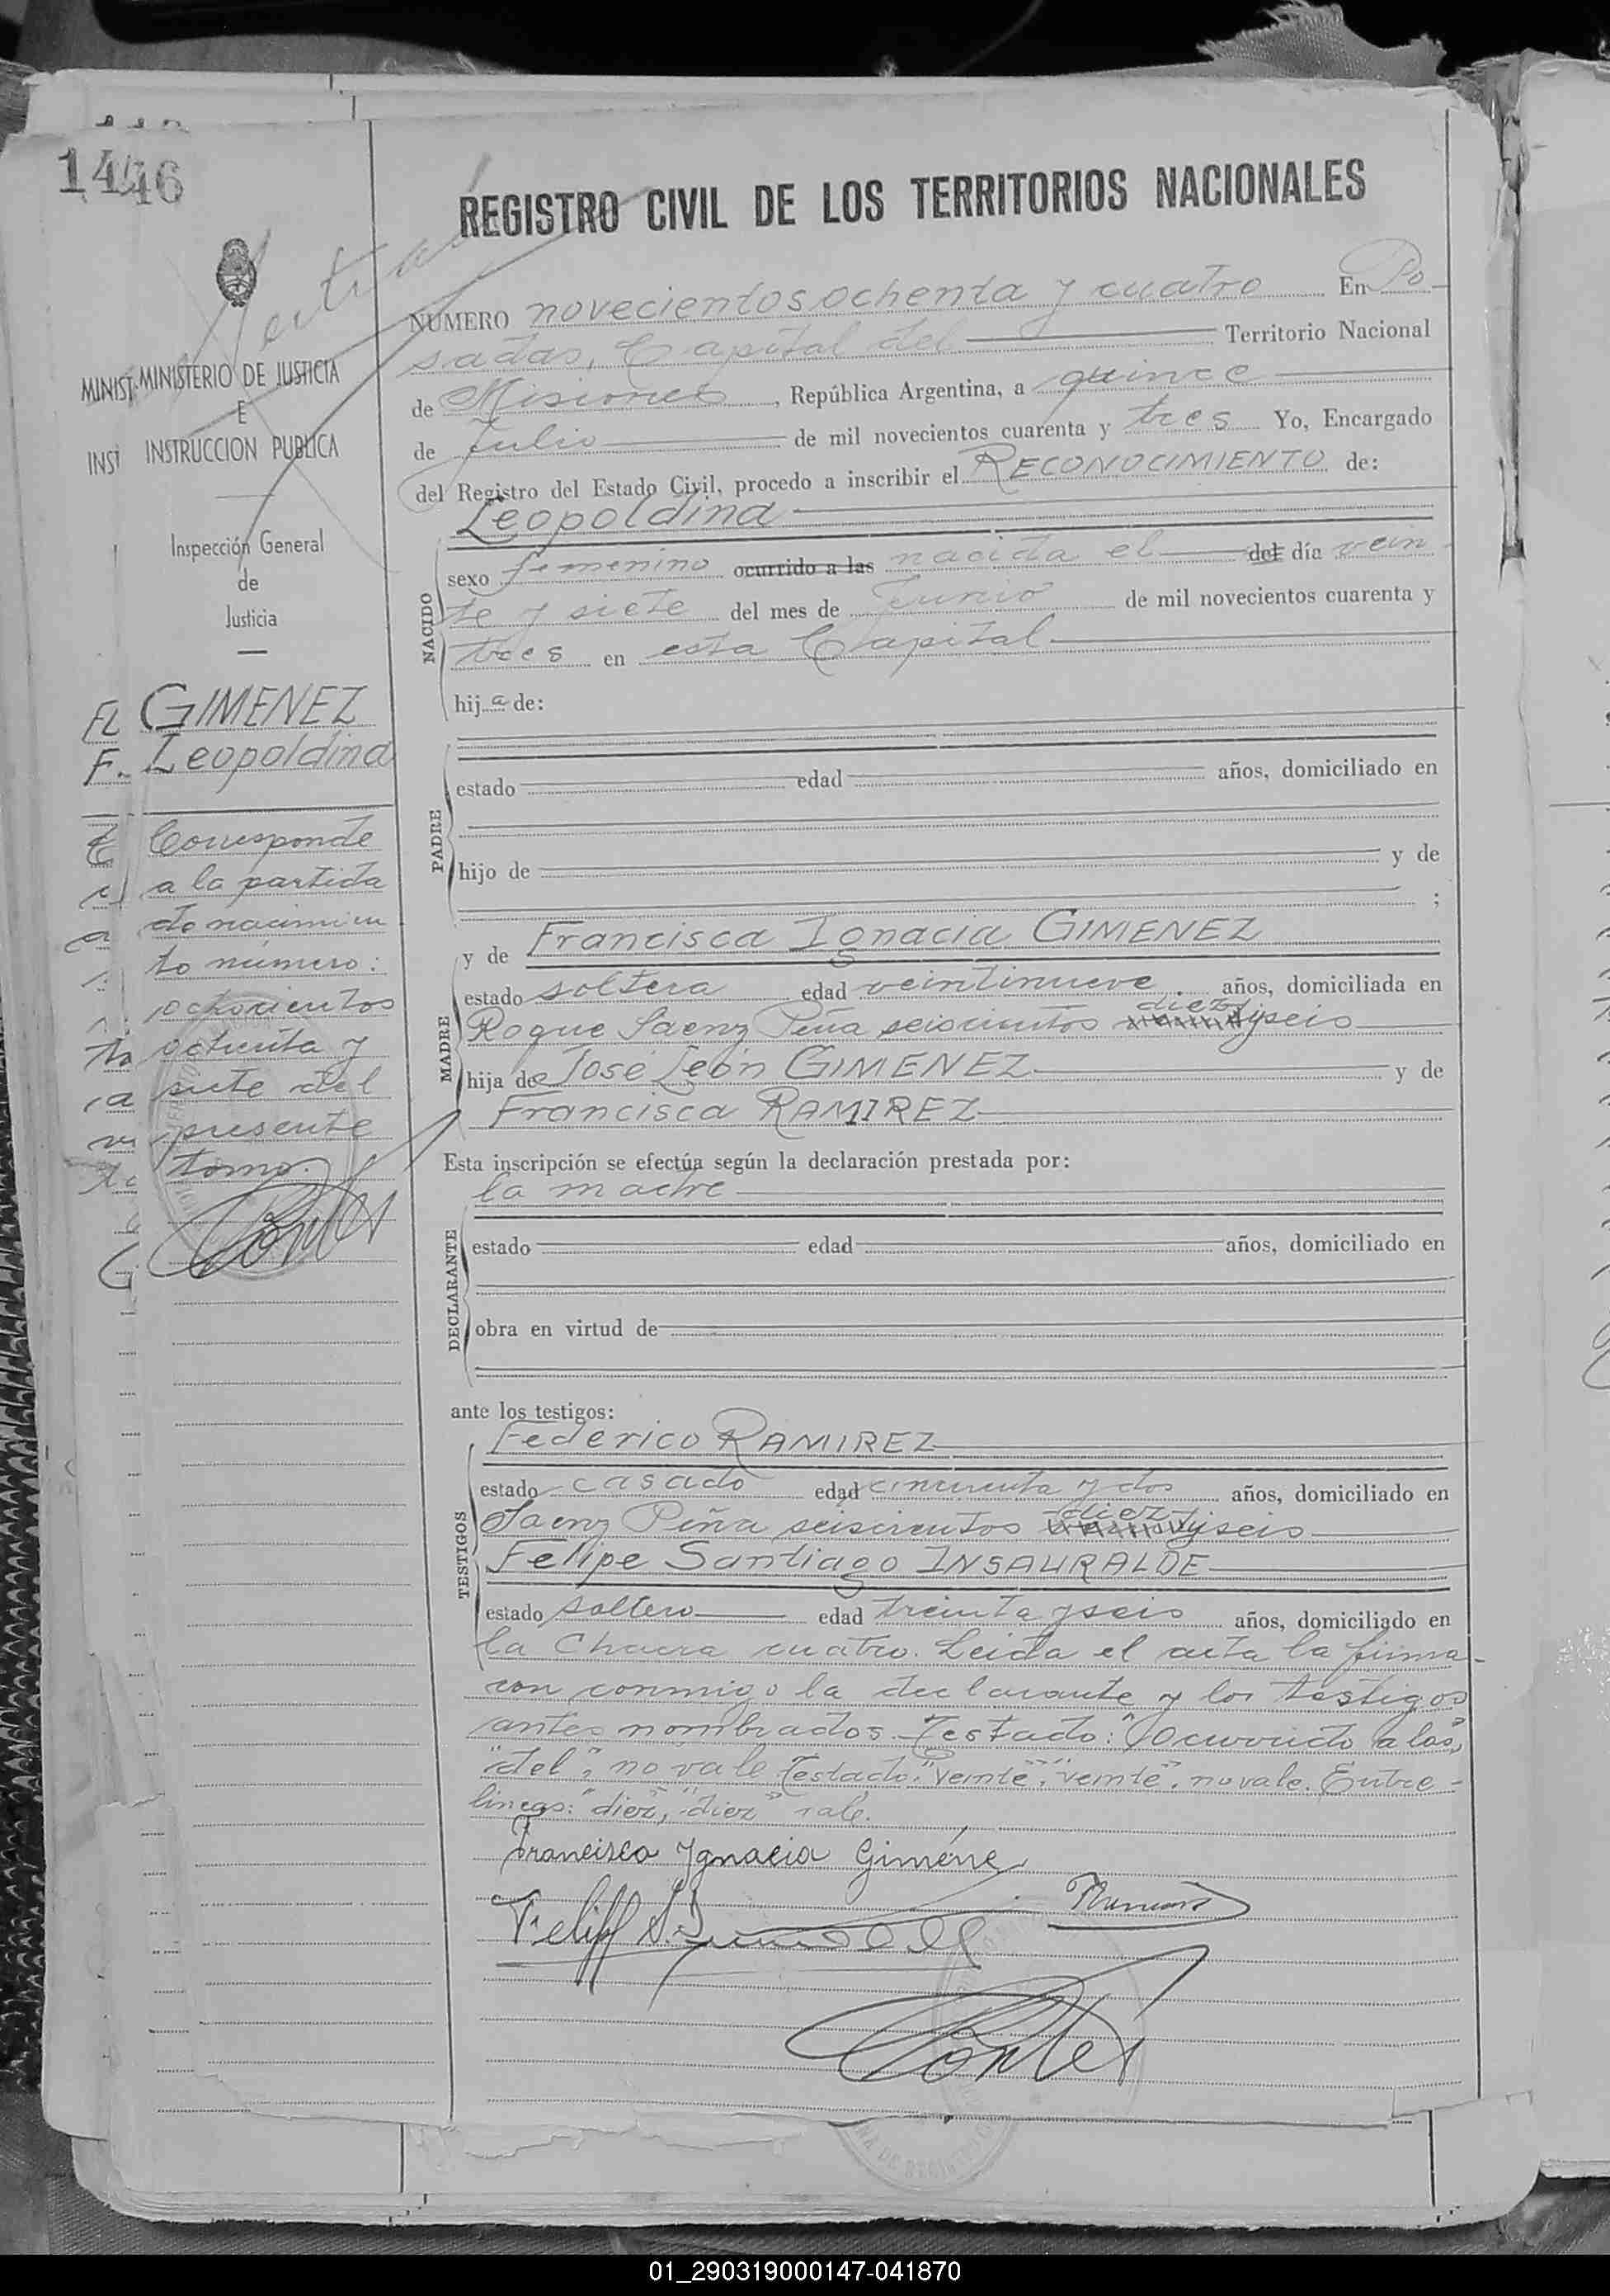 1446
REGISTRO CIVIL DE LOS TERRITORIOS NACIONALES
MINISTERIO DE JUSTICIA
E
INSTRUCCION PUBLICA
Inspección General
de
Justicia
GIMENEZ
Leopoldina
Corresponde
a la partida
de nacimien
to número:
ochocientos
ochenta y
siete del
presente
tomo.
NUMERO novecientos ochenta y cuatro En Po-
sadas, Capital del Territorio Nacional
de Misiones, República Argentina, a quince
de Julio de mil novecientos cuarenta y tres Yo, Encargado
del Registro del Estado Civil, procedo a inscribir el RECONOCIMIENTO de:
Leopoldina
NACIDO
sexo femenino ocurrido a las nacida el del día vein-
te y siete del mes de Junio de mil novecientos cuarenta y
tres en esta Capital
hija de:
PADRE
estado edad años, domiciliado en
hijo de y de
;
y de Francisca Ignacia GIMENEZ
MADRE
estado soltera edad veintinueve años, domiciliada en
Roque Saenz Peña seiscientos diez yseis
hija de José León GIMENEZ y de
Francisca RAMIREZ
Esta inscripción se efectúa según la declaración prestada por:
la madre
DECLARANTE
estado edad años, domiciliado en
obra en virtud de
ante los testigos:
Federico RAMIREZ
TESTIGOS
estado casado edad cincuenta y dos años, domiciliado en
Saenz Peña seiscientos diez yseis
Felipe Santiago INSAURALDE
estado soltero edad treinta yseis años, domiciliado en
la Chacra cuatro. Leida el acta la firma-
con conmigo la declarante y los testigos
antes nombrados. Testado: "Ocurrido a las",
"del", no vale. Testado: "veinte", "veinte". no vale. Entre-
lineas: "diez", "diez" vale.
Francisca Ygnacia Giménez
01_290319000147-041870